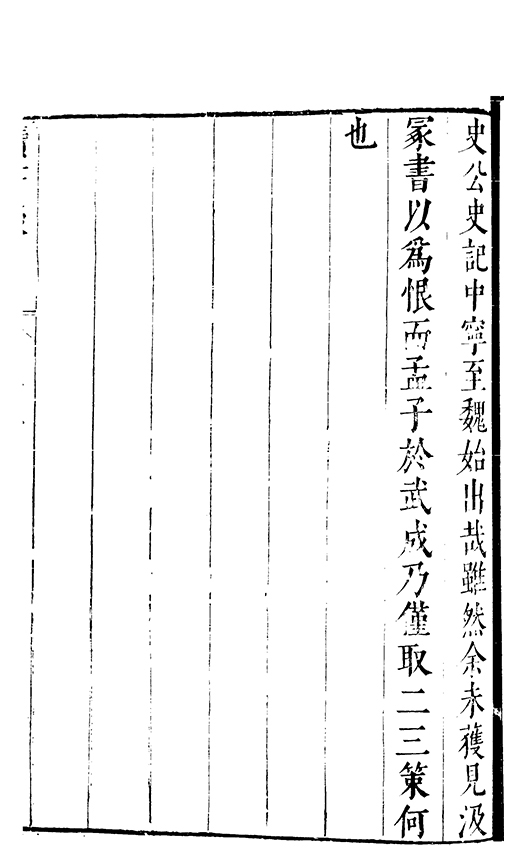 史公史記中寧至魏始出哉雖然余未獲見汲
冢書以爲恨而孟子於武成乃僅取二三策何
也